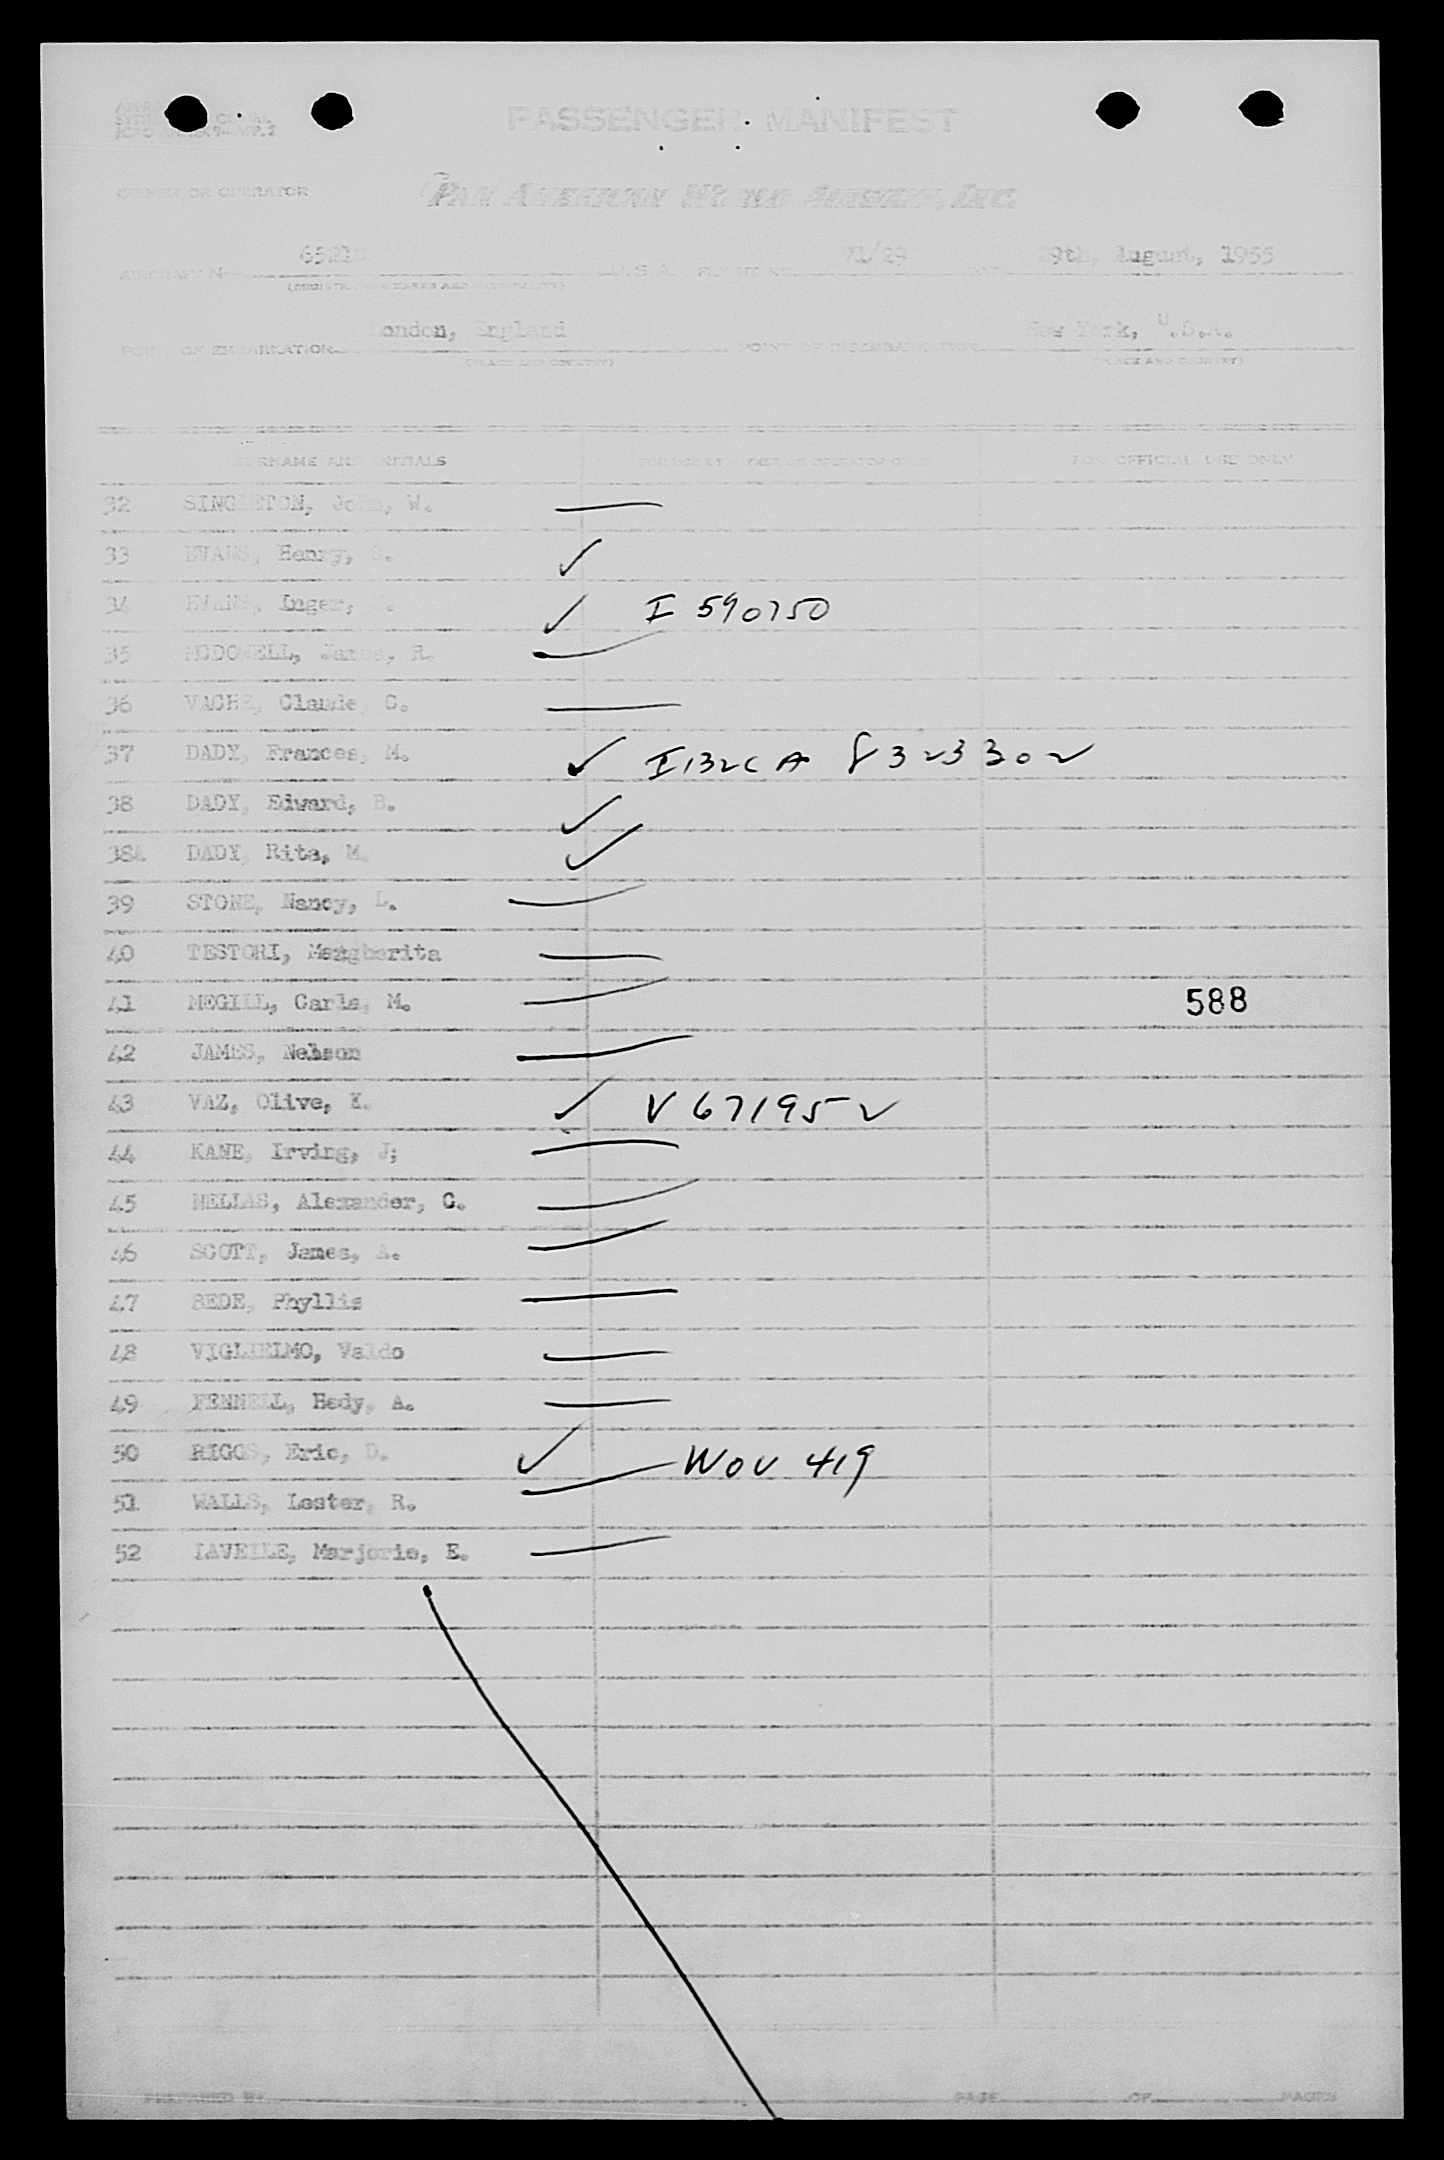 PASSENGER MANIFEST
OR OPERATOR
PAN AMERICAN WORLD AIRWAYS, INC.
71/29
August, 1955
London, England
New York, U.S.A.
POINT OF EMBARKATION
POINT OF DISEMBARKATION
(PLACE AND COUNTRY) (PLACE AND COUNTRY)
SURNAME AND INITIALS
FOR OFFICIAL USE ONLY
32 SINGLETON, John, W.
33 EVANS, Henry,
34 EVANS, Inger, I 590750
35 MCDOWELL, James, R.
36 Claude C.
37 DADY, Frances, M. I132CA 8323302
38 DADY, Edward, B.
38A DADY, Rita, M.
39 STONE, Nancy, L.
40 TESTORI, Margherita
41 MEGILL, Carla, M. 588
42 JAMES, Nelson
43 VAZ, Olive, E. V671952
44 KANE, Irving, J;
45 MELLAS, Alexander, C.
46 SCOTT, James, A.
47 BEDE, Phyllis
48 VIGLIELMO, Valdo
49 FENNELL, Hedy, A.
50 RIGGS, Eric, D. WOV 419
51 WALLS, Lester, R.
52 Marjorie, E.
PREPARED BY PAGE OF PAGES